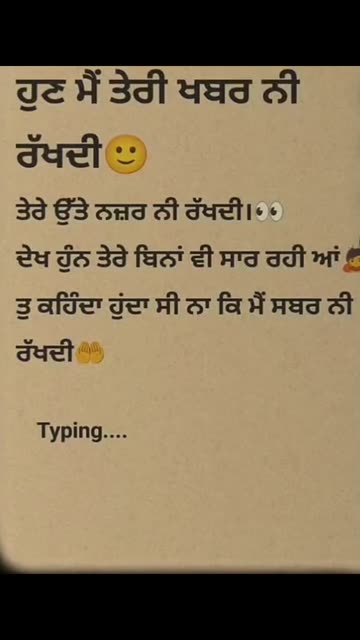 ਹੁਣ ਮੈਂ ਤੇਰੀ ਖਬਰ ਨੀ
ਰੱਖਦੀ🙂
ਤੇਰੇ ਉੱਤੇ ਨਜ਼ਰ ਨੀ ਰੱਖਦੀ।👀
ਦੇਖ ਹੁੰਨ ਤੇਰੇ ਬਿਨਾਂ ਵੀ ਸਾਰ ਰਹੀ ਆਂ🙇
ਤੁ ਕਹਿੰਦਾ ਹੁੰਦਾ ਸੀ ਨਾ ਕਿ ਮੈਂ ਸਬਰ ਨੀ
ਰੱਖਦੀ🤲
Typing....